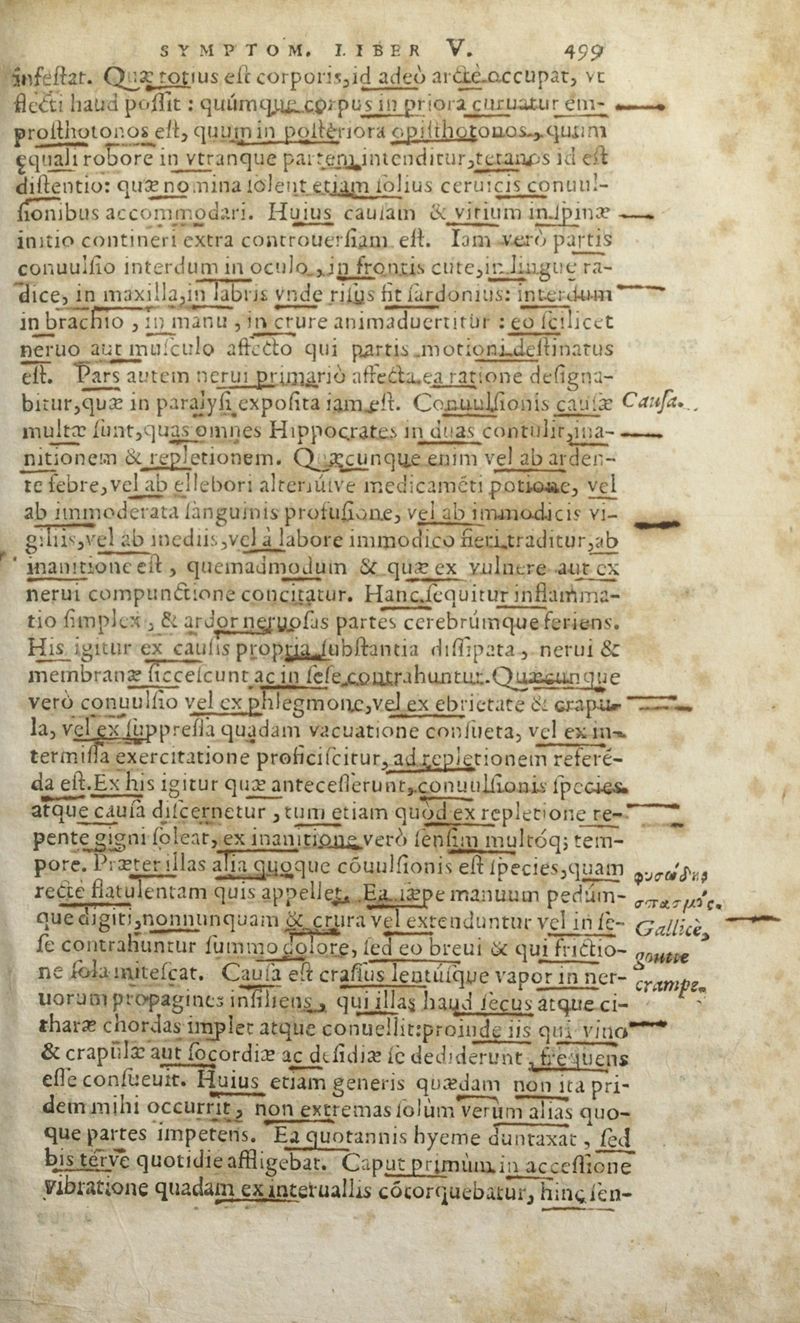 SYMPTOM. LIBER V. 499
infestat. Quæ totius est corporis, id adeò arctè occupat, vt
flecti haud possit : quúmque corpus in priora curuatur em-
prosthotonos est, quum in posteriora opisthotonos, quum
ęquali robore in vtranque partem intenditur, tetanos id est
distentio: quæ nomina solent etiam solius ceruicis conuul-
sionibus accommodari. Huius causam & vitium in spinæ
initio contineri extra controuersiam est. Iam verò partis
conuulsio interdum in oculo, in frontis cute, in lingue ra-
dice, in maxilla, in labris vnde risus fit sardonius: interdum
in brachio , in manu , in crure animaduertitur : eo scilicet
neruo aut musculo affecto qui partis motioni destinatus
est. Pars autem nerui primariò affecta, ea ratione designa-
bitur, quæ in paralysi exposita iam est. Conuulsionis causæ Causa.
multæ sunt, quas omnes Hippocrates in duas contulit, ina-
nitionem & repletionem. Quæcunque enim vel ab arden-
te febre, vel ab ellebori alteriúsve medicaméti potione, vel
ab immoderata sanguinis profusione, vel ab immodicis vi-
giliis, vel ab inediis, vel à labore immodico fieri traditur, ab
inanitione est , quemadmodum & quæ ex vulnere aut ex
nerui compunctione concitatur. Hanc sequitur inflamma-
tio simplex , & ardor neruosas partes cerebrúmque feriens.
His igitur ex causis propria substantia dissipata , nerui &
membranæ siccescunt ac in sese contrahuntur. Quæcunque
verò conuulsio vel ex phlegmone, vel ex ebrietate & crapu-
la, vel ex suppressa quadam vacuatione consueta, vel ex in-
termissa exercitatione proficiscitur, ad repletionem referé-
da est. Ex his igitur quæ antecesserunt, conuulsionis species
atque causa discernetur , tum etiam quòd ex repletione re-
pente gigni soleat, ex inanitione verò sensim multóq; tem-
pore. Præter illas alia quoque cóuulsionis est species, quam
rectè flatulentam quis appellet. Ea sæpe manuum pedúm-
que digiti, nonnunquam & crura vel extenduntur vel in se- Gallicè,
se contrahuntur summo dolore, sed eo breui & qui frictio- goutte
ne sola mitescat. Causa est crassus lentúsque vapor in ner- crampe.
uorum propagines insiliens , qui illas haud secus atque ci-
tharæ chordas implet atque conuellit: proinde iis qui vino
& crapulæ aut socordiæ ac desidiæ se dediderunt , frequens
esse consueuit. Huius etiam generis quædam non ita pri-
dem mihi occurrit , non extremas solùm verùm alias quo-
que partes impetens. Ea quotannis hyeme duntaxat , sed
bis térve quotidie affligebat. Caput primùm in accessione
vibratione quadam ex interuallis cótorquebatur, hinc sen-